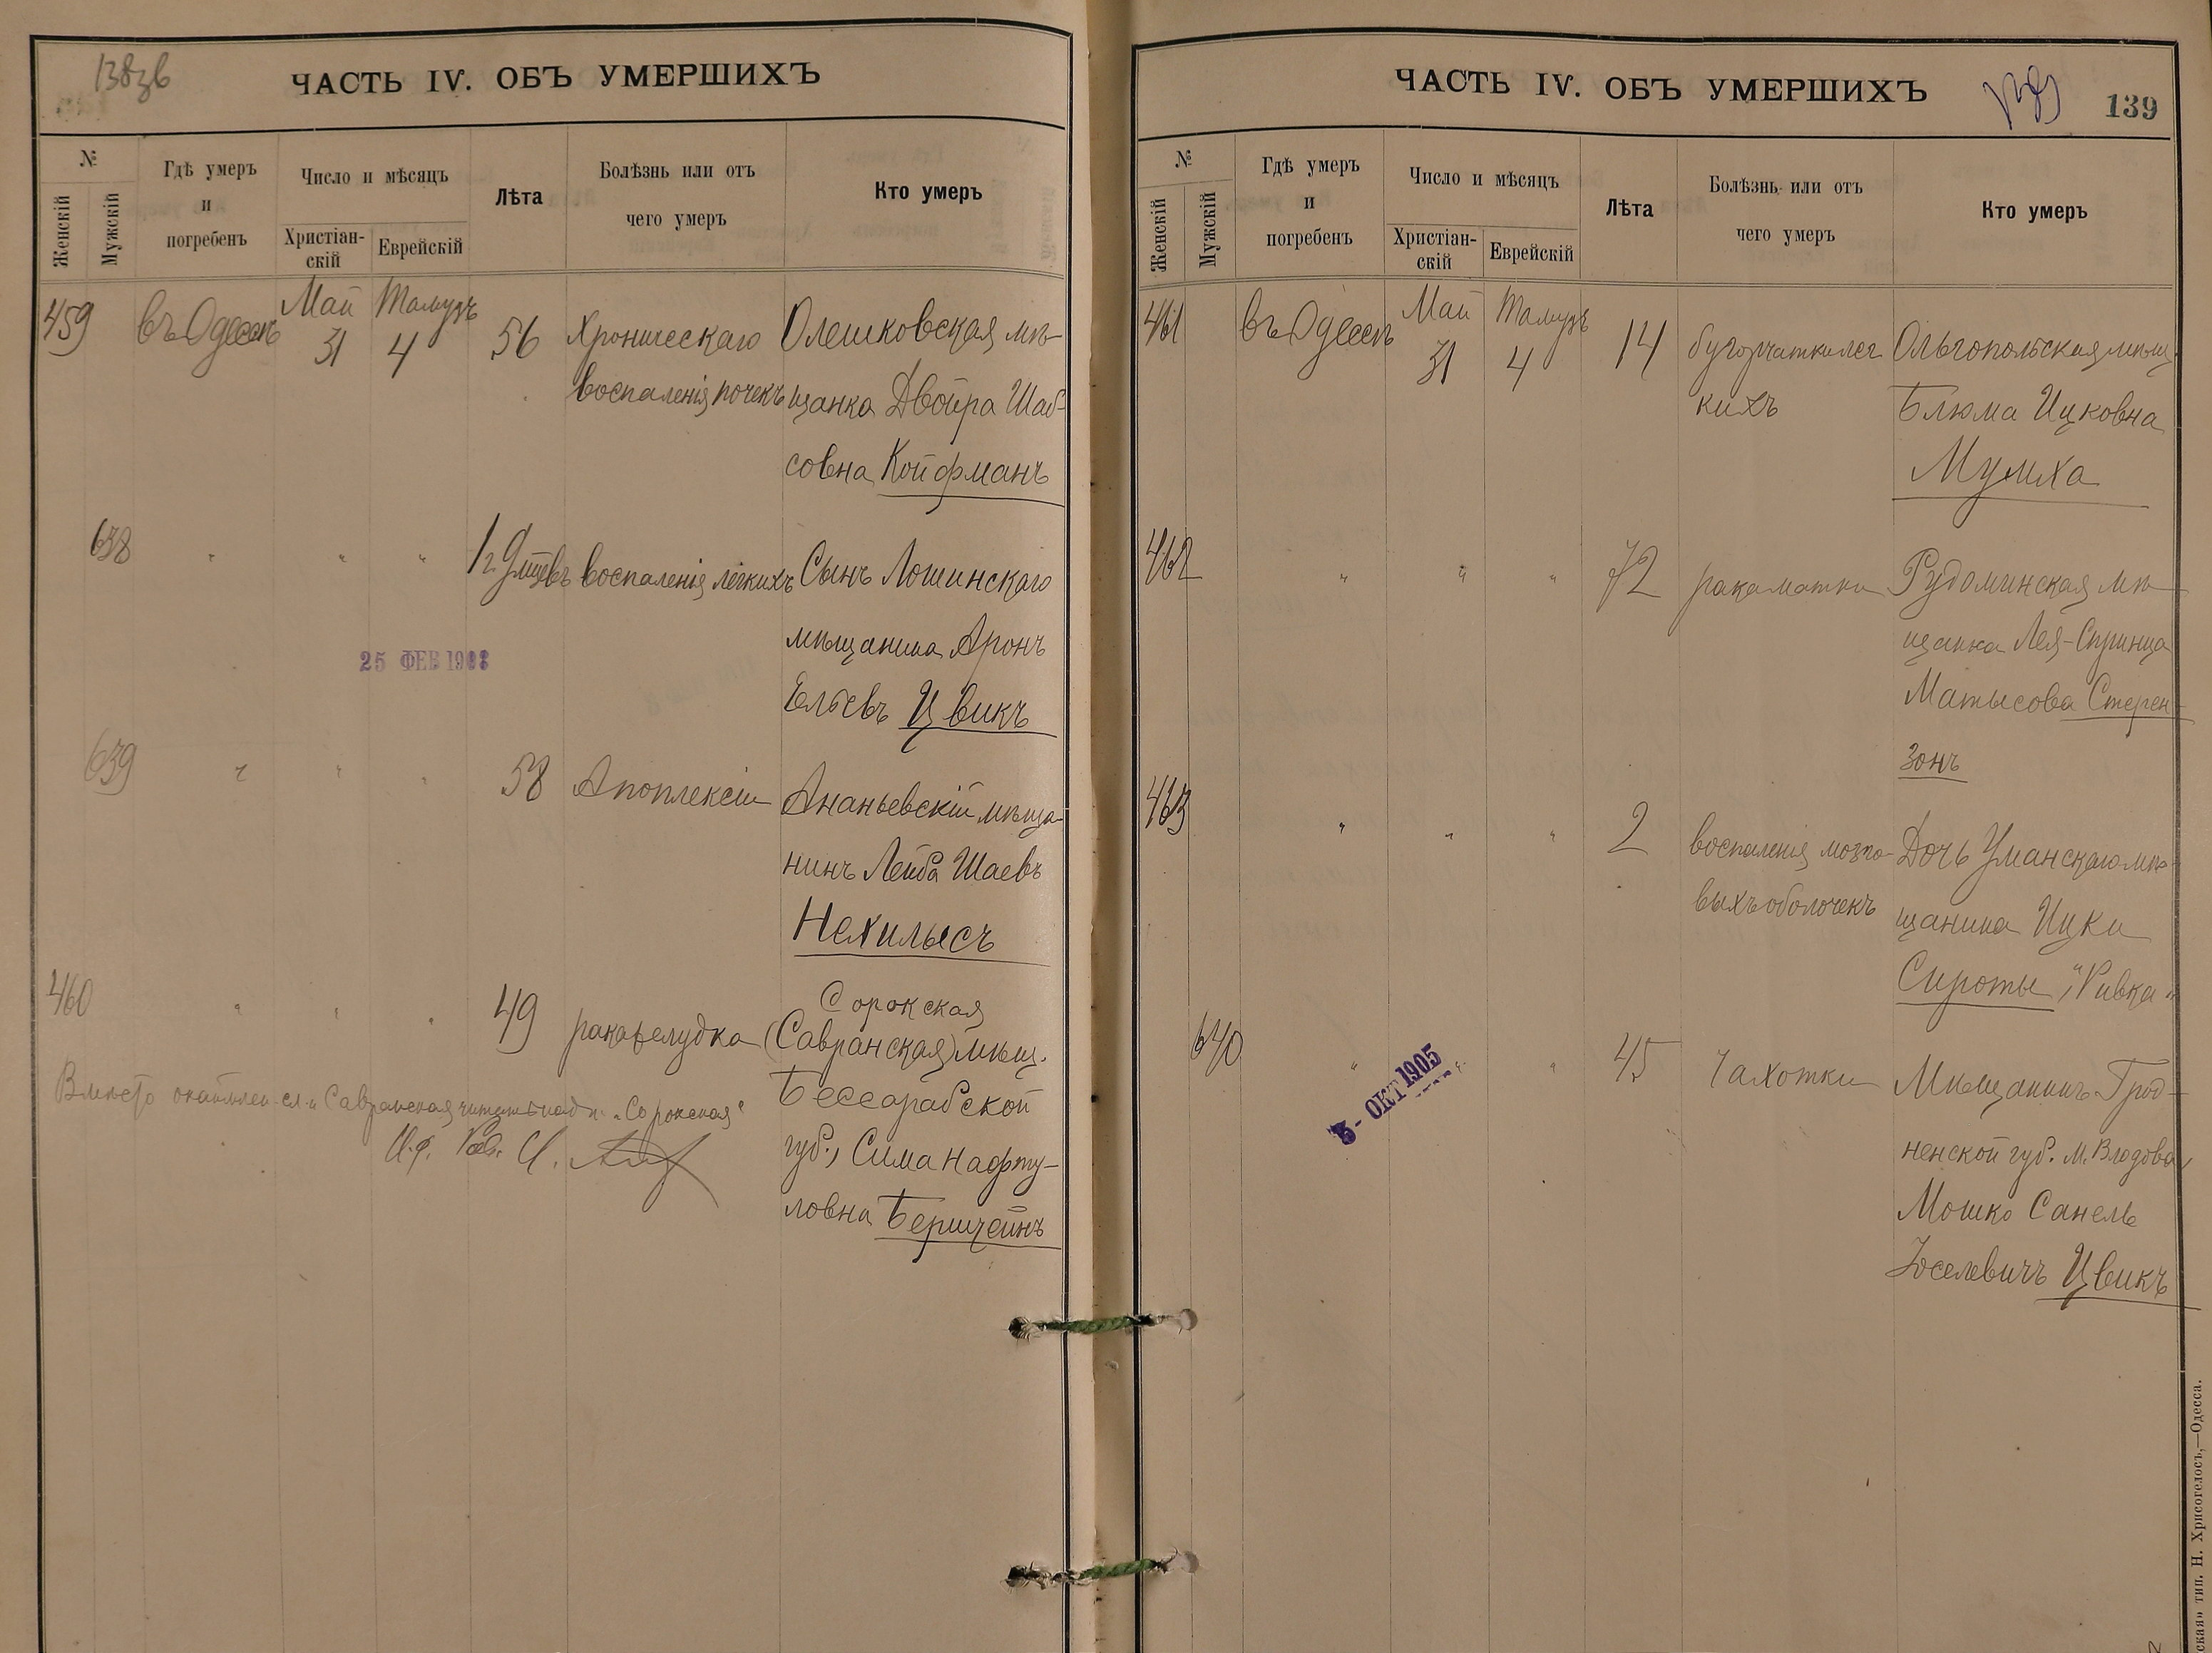 138зв
ЧАСТЬ IV. ОБЪ УМЕРШИХЪ
№
Женскій
Мужскій
Гдѣ умеръ
и
погребенъ
Число и мѣсяцъ
Христіан-
скій
Еврейскій
Лѣта
Болѣзнь или отъ
чего умеръ
Кто умеръ
459 въ Одессѣ Май 31 Тамузъ 4 56 Хроническаго Олешковская мѣ-
воспаленія почекъ щанка Двойра Шаб-
совна Койфманъ
638 " " " 1 г. 9 мцевъ воспаленія легкихъ Сынъ Лошинскаго
мѣщанина Аронъ
Ельевъ Цвикъ
25 ФЕВ 1908
639 " " " 58 Апоплексіи Ананьевскій мѣща-
нинъ Лейба Шаевъ
Нехилысъ
460 " " " 49 рака желудка Сорокская
(Савранская) мѣщ.
Бессарабской
губ., Сима Нафту-
ловна Берштейнъ
Вмѣсто окаймлен. сл. "Савранская" читать надп. "Сорокская"
И.ф. Рав.
ЧАСТЬ IV. ОБЪ УМЕРШИХЪ
139
№
Женскій
Мужскій
Гдѣ умеръ
и
погребенъ
Число и мѣсяцъ
Христіан-
скій
Еврейскій
Лѣта
Болѣзнь или отъ
чего умеръ
Кто умеръ
461 въ Одессѣ Май 31 Тамузъ 4 14 бугорчатки лег Ольгопольская мѣщ.
кихъ Блюма Ицковна
Мумха
462 " " " 72 рака матки Рудоминская мѣ-
щанка Лея-Спринца
Матысова Стерен-
зонъ
463 " " " 2 воспаленія мозго- Дочь Уманскаго мѣ-
выхъ оболочекъ щанина Ицки
Сироты, "Ривка"
640 " " " 45 Чахотки Мѣщанинъ Грод-
ненской губ. м. Влодова,
Мошко Санель
Іоселевичъ Цвикъ
3 - ОКТ 1905
ская" тип. Н. Хрисогелосъ,—Одесса.